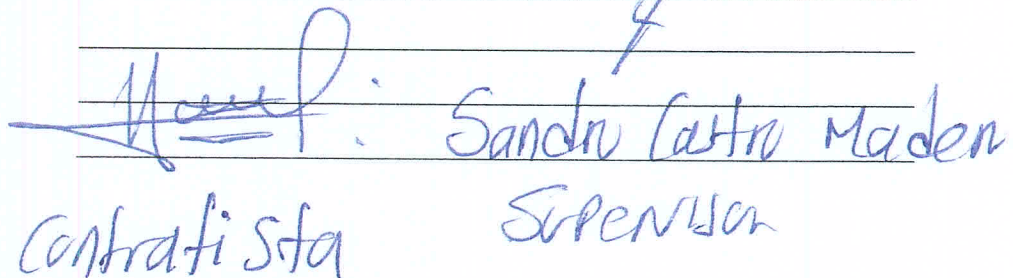 Sandro Castro Maden
Contratista Supervisor